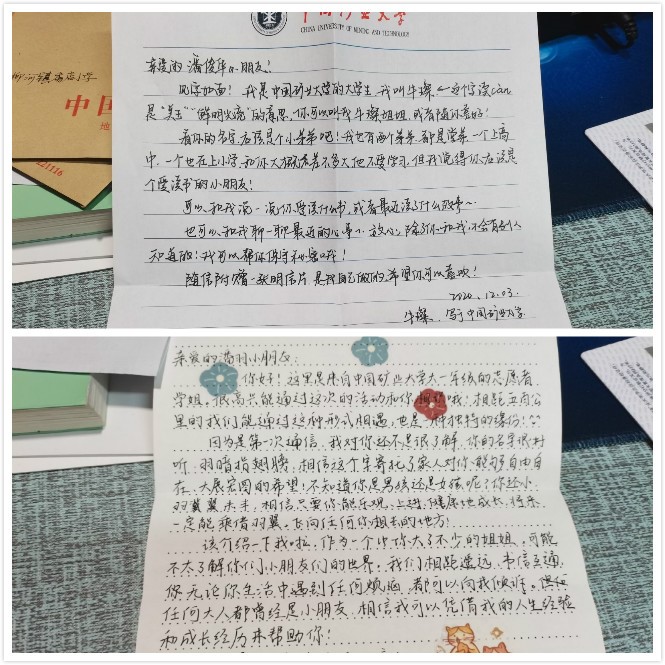 中国矿业大学
CHINA UNIVERSITY OF MINING AND TECHNOLOGY
亲爱的潘俊华小朋友!
见字如面!我是中国矿业大学的大学生,我叫牛璨←这个字读càn
是"美玉""鲜明光亮"的意思,你可以叫我牛璨姐姐,或者随你喜好!
看你的名字应该是个小弟弟吧!我也有两个弟弟,都是堂弟,一个上高
中,一个也在上小学,和你大概差不多大,他不爱学习,但我觉得你应该是
个爱读书的小朋友!
可以和我说一说你爱读什么书,或者最近读了什么故事~
也可以和我聊一聊最近的心事,放心,除了你和我,不会有别人
知道的!我可以帮你保守小秘密哦!
随信附赠一张明信片,是我自己做的,希望你可以喜欢!
2020.12.03
牛璨 写于中国矿业大学
中国
221116
亲爱的 羽小朋友:
你好!这里是来自中国矿业大学大一年级的志愿者
学姐,很高兴能通过这次的活动和你相 哦!相距五百公
里的我们能通过这种形式相遇,也是一种独特的缘份!^^
因为是第一次通信,我对你还不是很了解,你的名字很好
听,羽暗指翅膀,相信这个字寄托了家人对你能够自由自
在、大展宏图的希望!不知道你是男孩还是女孩呢?你还小,
羽翼 未丰,相信只要你能乐观、上进、健康地成长,将来
一定能乘借羽翼,飞向任何你想去的地方!
该介绍一下我啦,作为一个比你大了不少的姐姐,可能
不太了解你们小朋友们的世界,我们相距遥远,书信互通,
你无论你生活中遇到任何烦恼,都可以向我倾诉,
任何大人都曾经是小朋友,相信我可以凭借我的人生经验
和成长经历来帮助你!